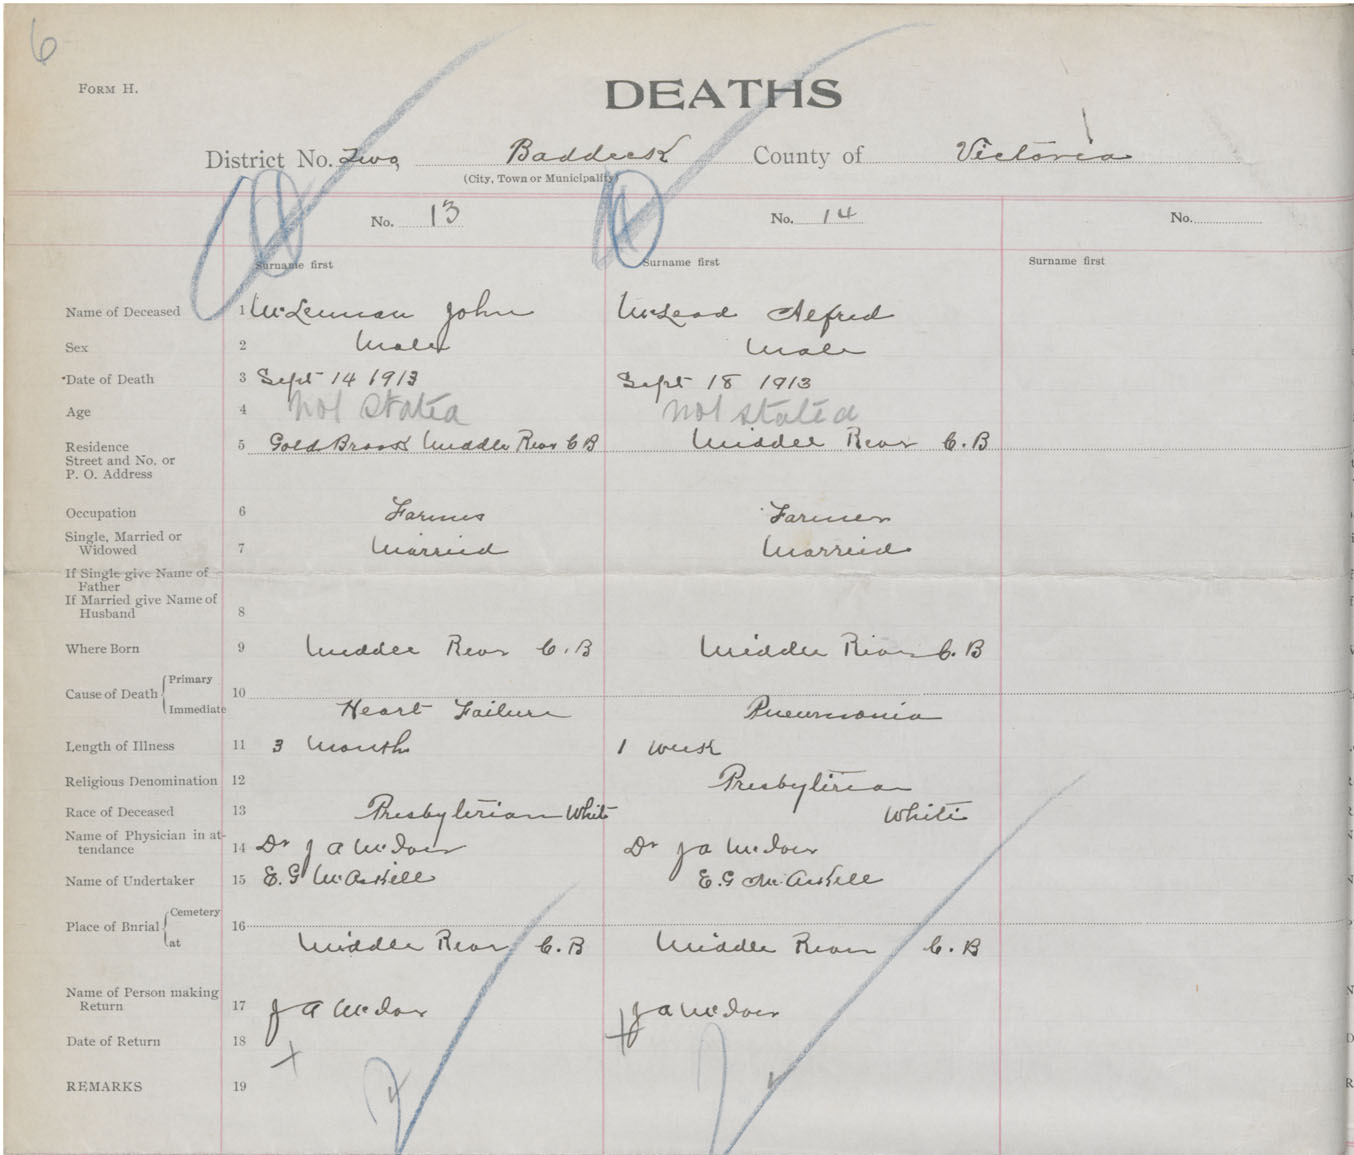 6
FORM H.
DEATHS
District No. Two Baddeck County of Victoria
(City, Town or Municipality)
No. 13 No. 14 No.
Surname first Surname first Surname first
Name of Deceased 1 McLennan John McLeod Alfred
Sex 2 Male Male
Date of Death 3 Sept 14 1913 Sept 18 1913
Age 4 Not Stated Not Stated
Residence 5 Gold Brook Middle River C B Middle River C.B
Street and No. or
P. O. Address
Occupation 6 Farmer Farmer
Single, Married or
Widowed 7 Married Married
If Single give Name of
Father
If Married give Name of
Husband 8
Where Born 9 Middle River C.B Middle River C.B
Primary
Cause of Death 10
Immediate Heart Failure Pneumonia
Length of Illness 11 3 Months 1 Week
Religious Denomination 12 Presbyterian
Race of Deceased 13 Presbyterian White White
Name of Physician in at-
tendance 14 Dr J A McIver Dr J A McIver
Name of Undertaker 15 E. G McAskill E. G McAskill
Cemetery
Place of Burial 16
at Middle River C.B Middle River C.B
Name of Person making
Return 17 J A McIver J A McIver
Date of Return 18
REMARKS 19